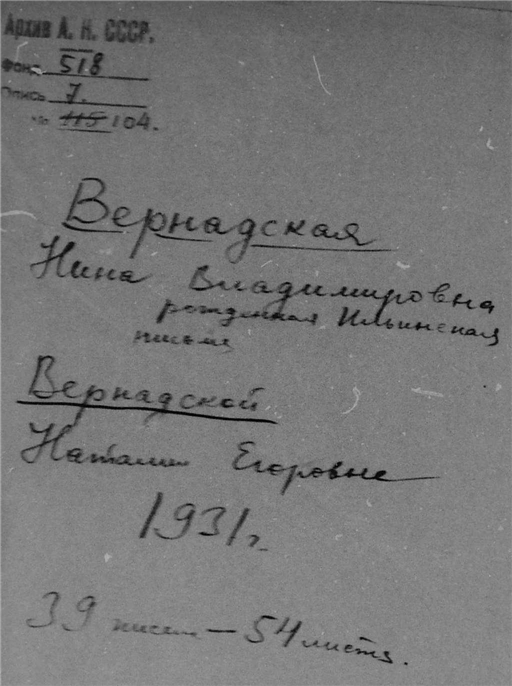 Архив А. Н. СССР.
Фонд 518
Опись 7.
№ 115 104.
Вернадская
Нина Владимировна
рожденная Ильинская
письма
Вернадской
Наталии Егоровне
1931 г.
39 писем — 54 листа.